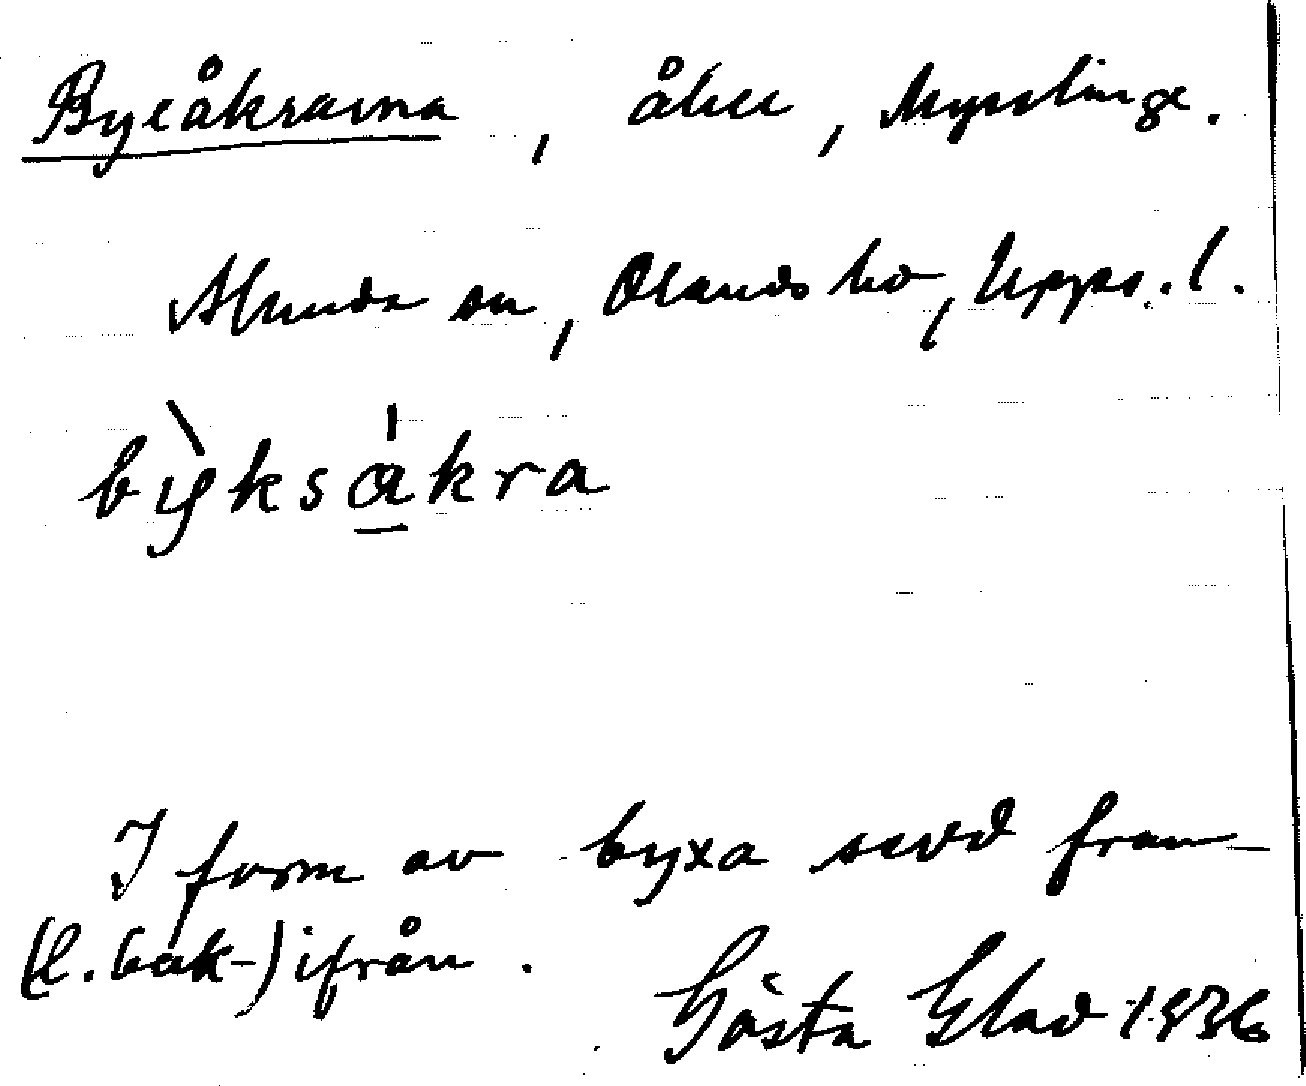 Byxåkrarna, åker, Mysslinge.
Alunda sn, Olands hd, Upps. l.
bỳksåkra
I form av byxa sedd fram-
(l. bak-) ifrån.
Gösta Glad 1936